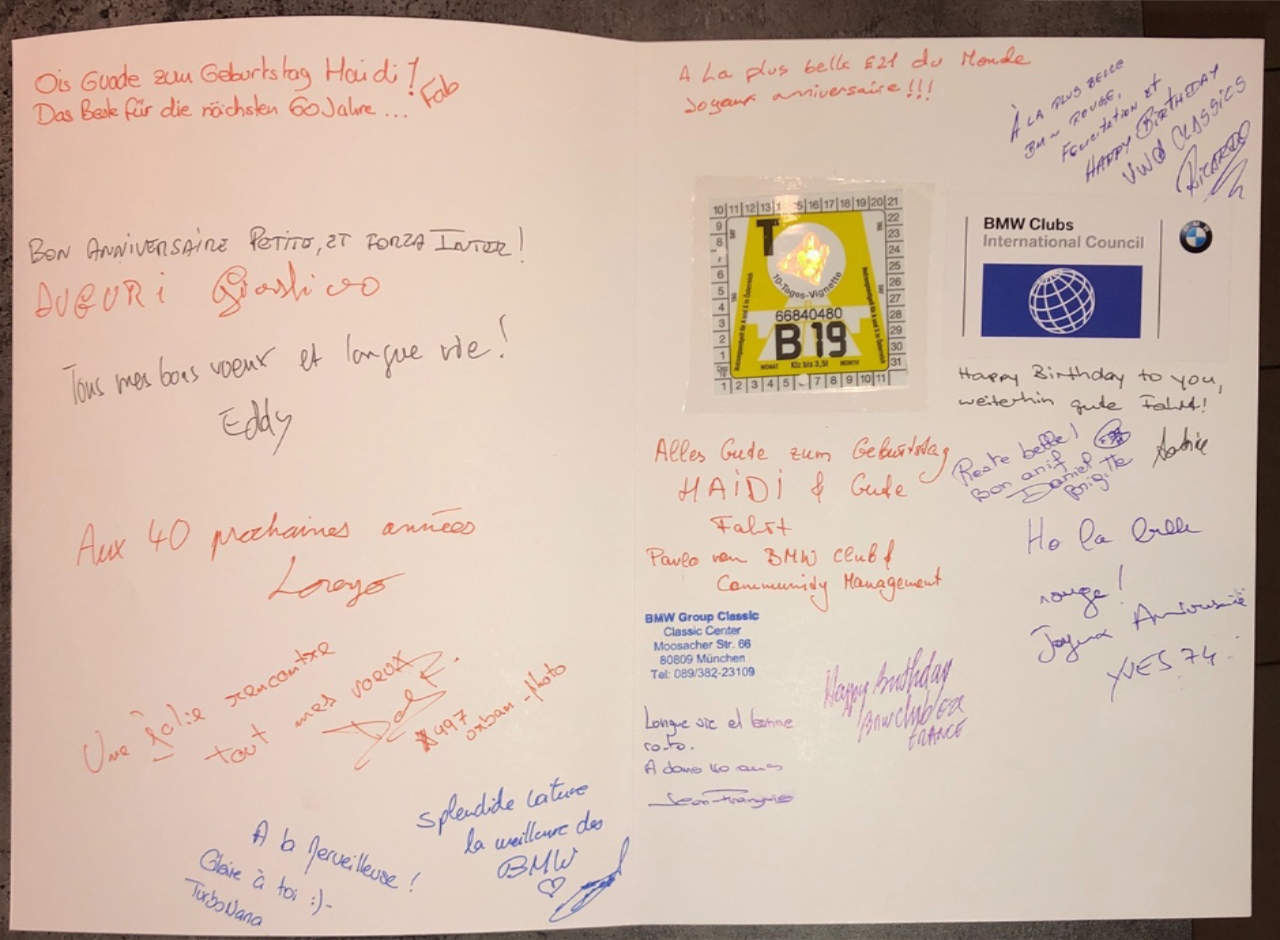 Ois Guade zum Geburtstag Haidi!
Das Beste für die nächsten 60 Jahre...
Fab
BON ANNIVERSAIRE PETITE, ET FORZA INTER!
AUGURi
Tous mes bons voeux et longue vie!
Eddy
Aux 40 prochaines années
Une jolie rencontre
tout mes voeux
urban-photo
A la merveilleuse!
Gloire à toi :)-
TurboNana
Splendide voiture
la meilleure des
BMW
A La plus belle E21 du Monde
Joyeux anniversaire!!!
À LA PLUS BELLE
BMW ROUGE,
FELICITATION ET
HAPPY BIRTHDAY
CLASSICS
RICARDO
10 11 12 13 14 15 16 17 18 19 20 21
9 22
8 23
24
6 25
5 26
4 27
3 28
2 29
1 30
31
T
10-Tages-Vignette
66840480
B 19
MONAT Kfz bis 3,5t MONTH
1 2 3 4 5 6 7 8 9 10 11
BMW Clubs
International Council
BMW
Happy Birthday to you,
weiterhin gute Fahrt!
Reste belle!
Bon anif
Daniel
Brigitte
Alles Gude zum Geburtstag
HAIDI & Gude
Fahrt
von BMW Club &
Community Management
BMW Group Classic
Classic Center
Moosacher Str. 66
80809 München
Tel: 089/382-23109
Ho la belle
rouge!
Joyeux Anniversaire
YVES 74
Happy Birthday
BMW Club E21
FRANCE
Longue vie et bonne
A dans 40 ans
Jean-François